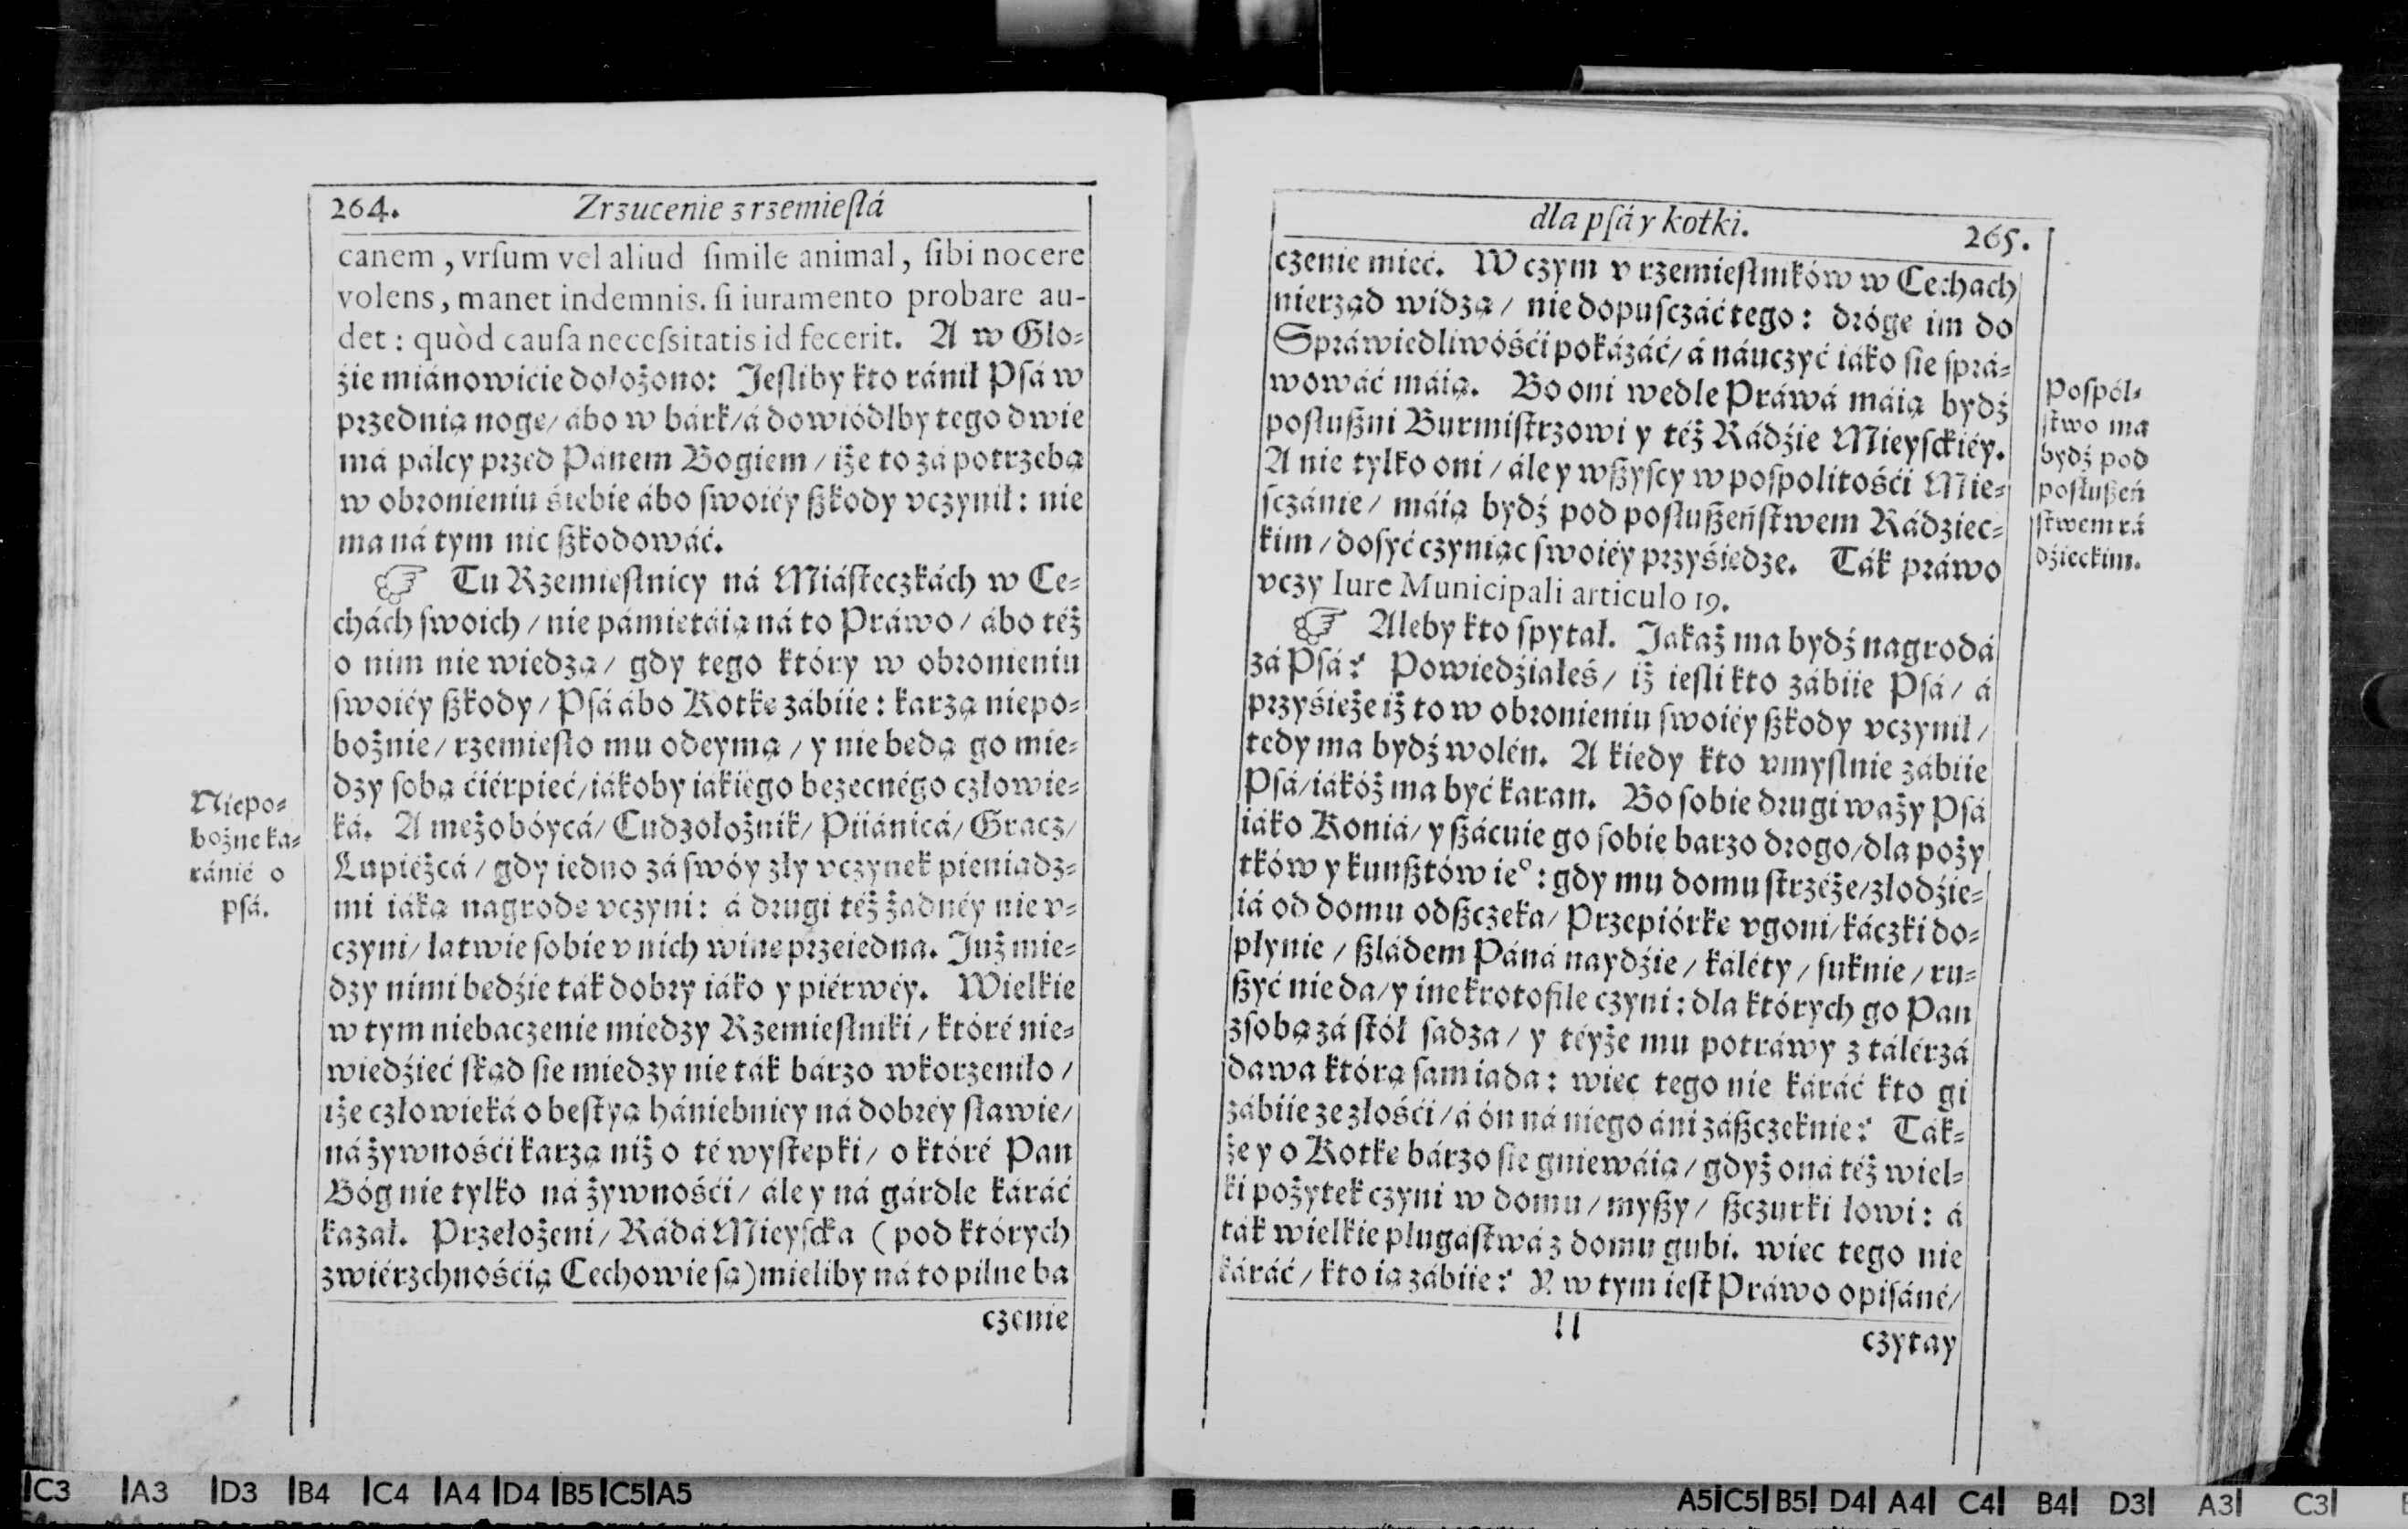 264. Zrzucenie z rzemieſłá
canem, vrſum vel aliud ſimile animal, ſibi nocere
volens, manet indemnis. ſi iuramento probare au-
det: quòd cauſa neceſsitatis id fecerit. A w Glo-
źie miánowićie dołożono: Jeſliby kto ránił Pſá w
przednią noge/ ábo w bárk/ á dowiódłby tego dwie
má pálcy przed Pánem Bogiem/ iże to zá potrzebą
w obronieniu śiebie ábo ſwoiéy ßkody vczynił: nie
ma ná tym nic ßkodowáć.
☞ Tu Rzemieſlnicy ná Miáſteczkách w Ce-
chách ſwoich/ nie pámietáią ná to Práwo/ ábo też
o nim nie wiedzą/ gdy tego który w obronieniu
ſwoiéy ßkody/ Pſá ábo Kotke zábiie: karzą niepo-
bożnie/ rzemieſło mu odeymą/ y nie bedą go mie-
dzy ſobą ćiérpieć/ iákoby iákiégo bezecnégo człowie-
ká. A mężobóycá/ Cudzołożnik/ Piiánicá/ Gracz/
Łupiéżcá/ gdy iedno zá ſwóy zły vczynek pieniądz-
mi iáką nagrode vczyni: á drugi téż żadnéy nie v-
czyni/ łatwie ſobie v nich wine przeiedna. Już mie-
dzy nimi bedźie ták dobry iáko y piérwéy. Wielkie
w tym niebaczenie miedzy Rzemieſlniki/ któré nie-
wiedźieć ſkąd ſie miedzy nie ták bárzo wkorzeniło/
iże człowieká o beſtyą hániebnicy ná dobréy ſławie/
ná żywnośći karzą niż o té wyſtepki/ o któré Pan
Bóg nie tylko ná żywnośći/ ále y ná gárdle káráć
kazał. Przełożeni/ Rádá Mieyſcka (pod których
zwiérzchnośćią Cechowie ſą) mieliby ná to pilne ba
czenie
Niepo-
bożne ka-
ránié o
pſá.
dla pſá y kotki. 265.
czenie mieć. W czym v rzemieſłników w Cechach
nierząd widzą/ nie dopuſczáć tego: dróge im do
Spráwiedliwośći pokázáć/ á náuczyć iáko ſie ſprá-
wowáć máią. Bo oni wedle Práwá máią bydź
poſłußni Burmiſtrzowi y téż Rádźie Mieyſckiéy.
A nie tylko oni/ ále y wßyſcy w poſpolitośći Mie-
ſczánie/ máią bydź pod poſłußeńſtwem Rádziec-
kim/ doſyć czyniąc ſwoiéy przyśiedze. Ták práwo
vczy Iure Municipali articulo 19.
☞ Aleby kto ſpytał. Jakaż ma bydź nagrodá
zá Pſá? Powiedźiałeś/ iż ieſli kto zábiie Pſá/ á
przyśieże iż to w obronieniu ſwoiéy ßkody vczynił/
tedy ma bydź wolén. A kiedy kto vmyſlnie zábiie
Pſá/ iákóż ma być karan. Bo ſobie drugi waży Pſá
iáko Koniá/ y ßácuie go ſobie barzo drogo/ dla poży
tków y kunßtów ie°: gdy mu domu ſtrzéże/ złodźie-
iá od domu odßczeka/ Przepiórke vgoni/ káczki do-
płynie/ ßládem Páná naydźie/ káléty/ ſuknie/ ru-
ßyć nie da/ y ine krotofile czyni: dla których go Pan
z ſobą zá ſtół ſadza/ y téyże mu potráwy z tálérzá
dawa którą ſam iada: wiec tego nie káráć kto gi
zábiie ze złośći/ á ón ná niego áni záßczeknie? Ták-
że y o Kotke bárzo ſie gniewáią/ gdyż oná téż wiel-
ki pożytek czyni w domu/ myßy/ ßczurki łowi: á
ták wielkie plugáſtwá z domu gubi. wiec tego nie
káráć/ kto ią zábiie? Y w tym ieſt Práwo opiſáné/
Ll czytay
Poſpól-
ſtwo ma
bydź pod
poſłußeń
ſtwem rá
dźieckim.
C3 A3 D3 B4 C4 A4 D4 B5 C5 A5
A5 C5 B5 D4 A4 C4 B4 D3 A3 C3